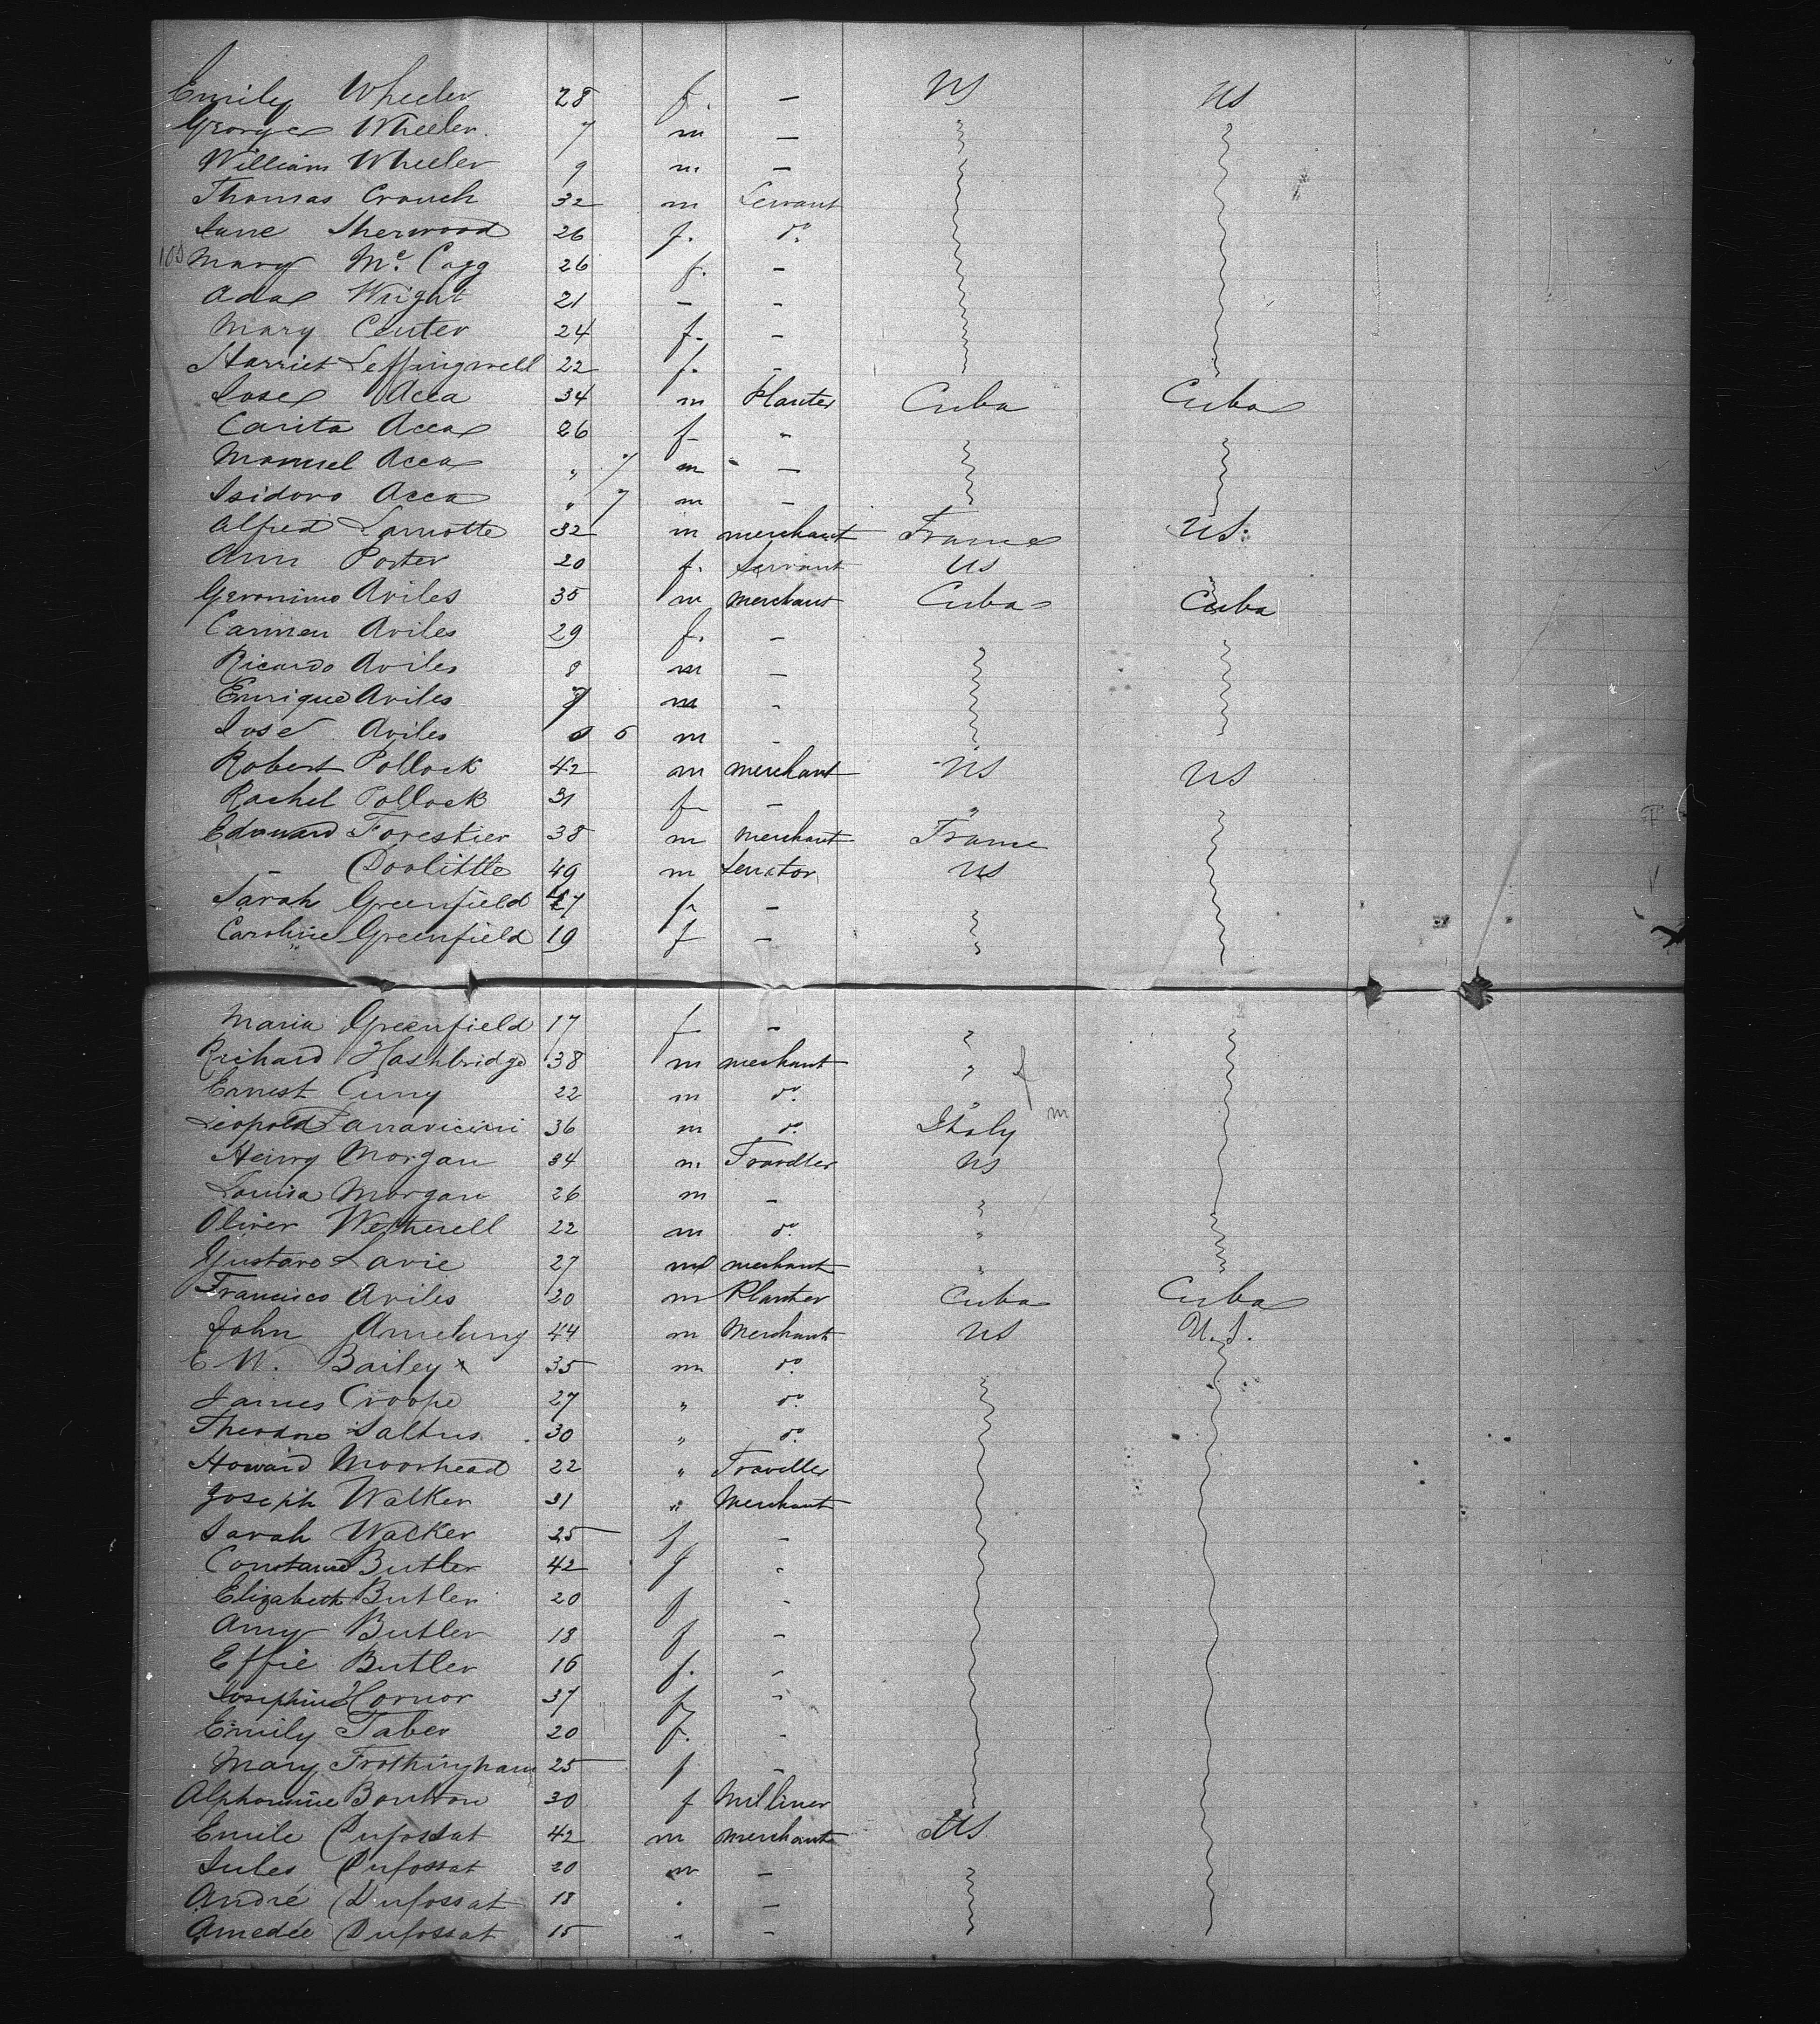 Emily Wheeler 28 f. — US US
George Wheeler. 7 m —
William Wheeler 9 m. —
Thomas Crouch 32 m Servant
Jane Sherwood 26 f. do.
100 Mary Mc. Cagg 26 f. —
Ada Wright 21 — —
Mary Center 24 f. —
Harriet Leffingwell 22 f. —
Jose Acea 34 m Planter Cuba Cuba
Carita Acea 26 f "
Manuel Acea " 7 m —
Isidoro Acea " 7 m —
Alfred Lamotte 32 m merchant France US.
Ann Porter 20 f. Servant US
Geronimo Aviles 35 m merchant Cuba Cuba
Carmen Aviles 29 f. —
Ricardo Aviles 8 m —
Enrique Aviles 7 m -
José Aviles 6 m -
Robert Pollock 42 m merchant US US
Rachel Pollock 31 f — "
Edouard Forestier 38 m merchant France
— Doolittle 49 m Senator US
Sarah Greenfield 47 f —
Caroline Greenfield 19 f —
Maria Greenfield 17 f —
Richard Hashbridge 38 m merchant " f
Ernest Cuny 22 m do. " m
Leopold Parravicini 36 m do. Italy
Henry Morgan 34 m Traveller US
Louisa Morgan 26 m —
Oliver Wetherell 22 m do. "
Gustavo Lavie 27 m merchant "
Francisco Aviles 20 m Planter Cuba Cuba
John Amelung 44 m Merchant US U.S.
E W. Bailey x 35 m do.
James Croope 27 " do.
Theodore Saltus 30 " do.
Howard Moorhead 22 " Traveller
Joseph Walker 31 " Merchant
Sarah Walker 25 f —
Constance Butler 42 f -
Elizabeth Butler 20 f -
Amy Butler 18 f —
Effie Butler 16 f. -
Josephine Hornor 37 f -
Emily Taber 20 f. -
Mary Frothingham 25 f —
Alphonsine 30 f Milliner
Emile Dufossat 42 m merchant US
Jules Dufossat 20 m —
André Dufossat 18 " —
Amedée Dufossat 15 " —